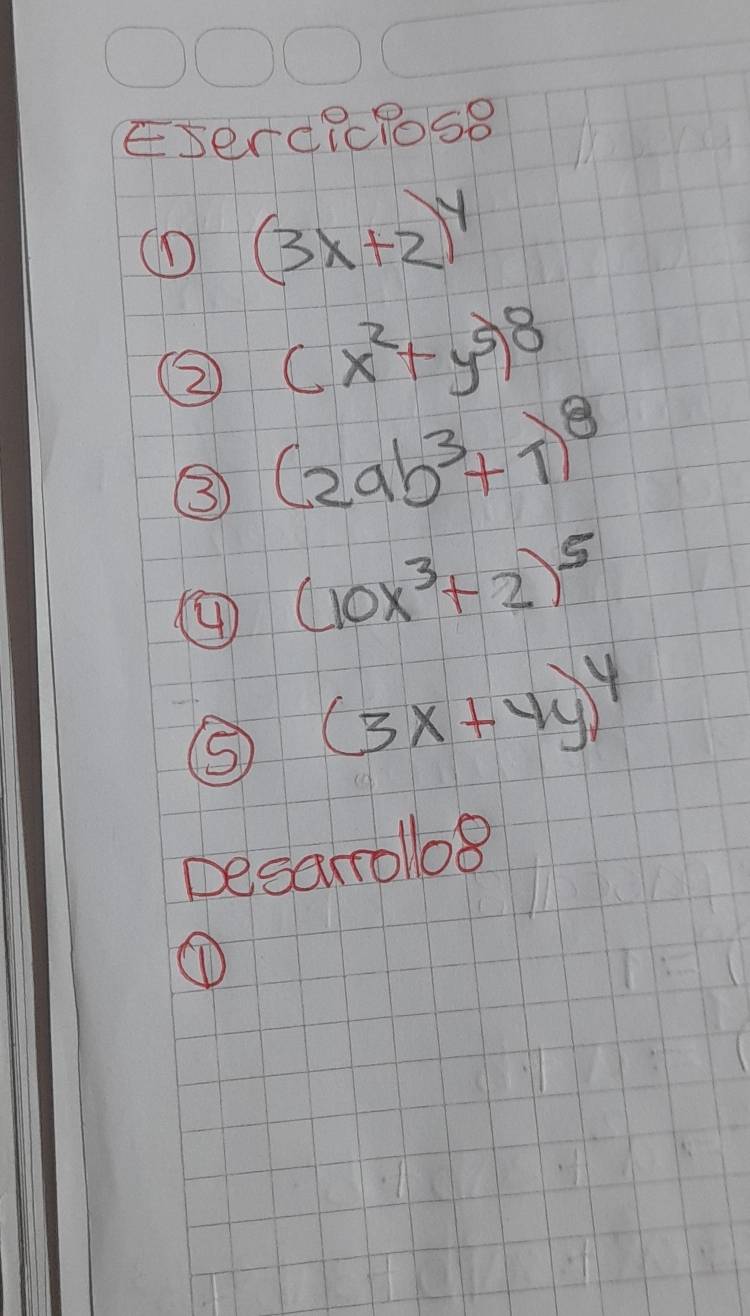 Ejercicios:
① (3x+2)⁴
② (x²+y⁵)⁸
③ (2ab³+1)⁸
④ (10x³+2)⁵
⑤ (3x+4y)⁴
Desarrollo:
①